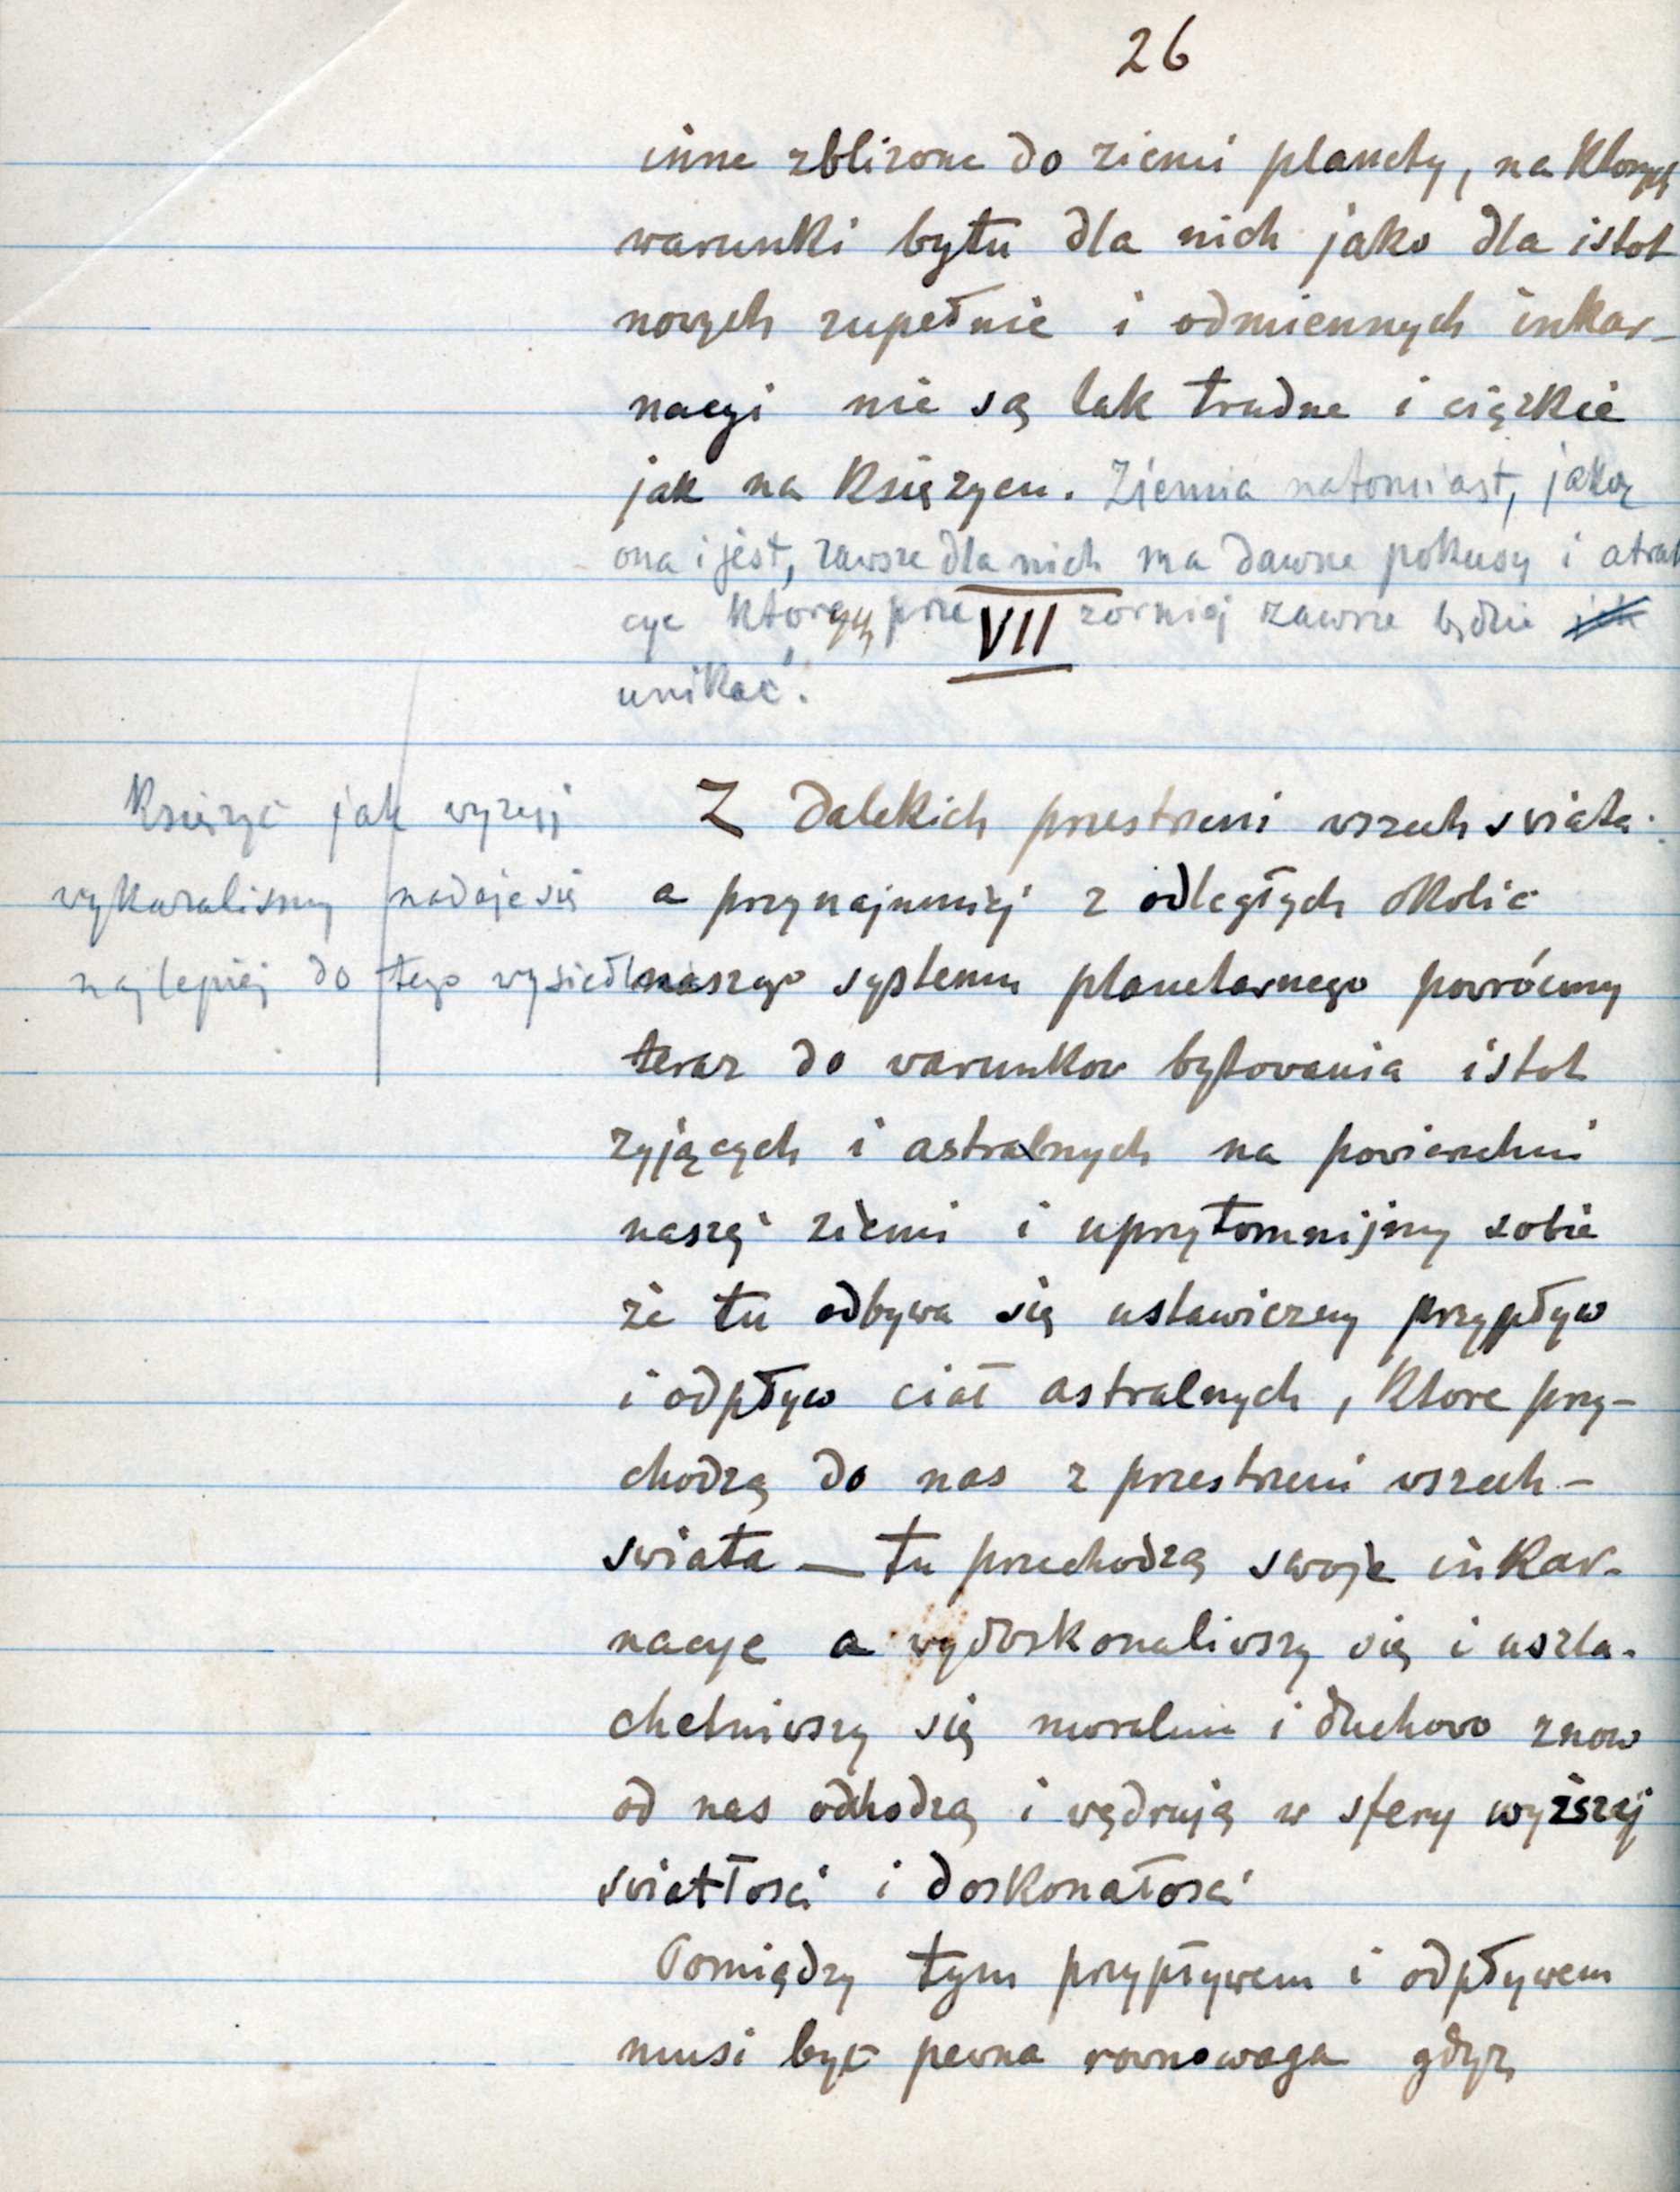 26
inne zblizone do ziemi planety, na ktorych
warunki bytu dla nich jako dla istot
nowych zupełnie i odmiennych inkar-
nacyi nie są tak trudne i ciężkie
jak na Księzycu. Ziemia natomiast, jaką
ona i jest, zawsze dla nich ma dawne pokusy i atrak
cye których prze zorniej zawsze będzie
VII
unikać.
Księzyc jak wyzej
wykazalismy nadaje się
najlepiej do tego
Z dalekich przestrzeni wszech swiata
a przynajmniej z odległych okolic
naszego systemu planetarnego powróćmy
teraz do warunkow bytowania istot
zyjących i astralnych na powierzchni
naszej ziemi i uprzytomnijmy sobie
że tu odbywa się ustawiczny przypływ
i odpływ ciał astralnych, ktore przy-
chodzą do nas z przestrzeni wszech-
swiata — tu przechodzą swoje inkar-
nacye a wydoskonaliwszy się i uszla-
chetniwszy się moralnie i duchowo znow
od nas odchodzą i wędrują w sfery wyższej
swiatłosci i doskonałosci
Pomiędzy tym przypływem i odpływem
musi być pewna rownowaga gdyz